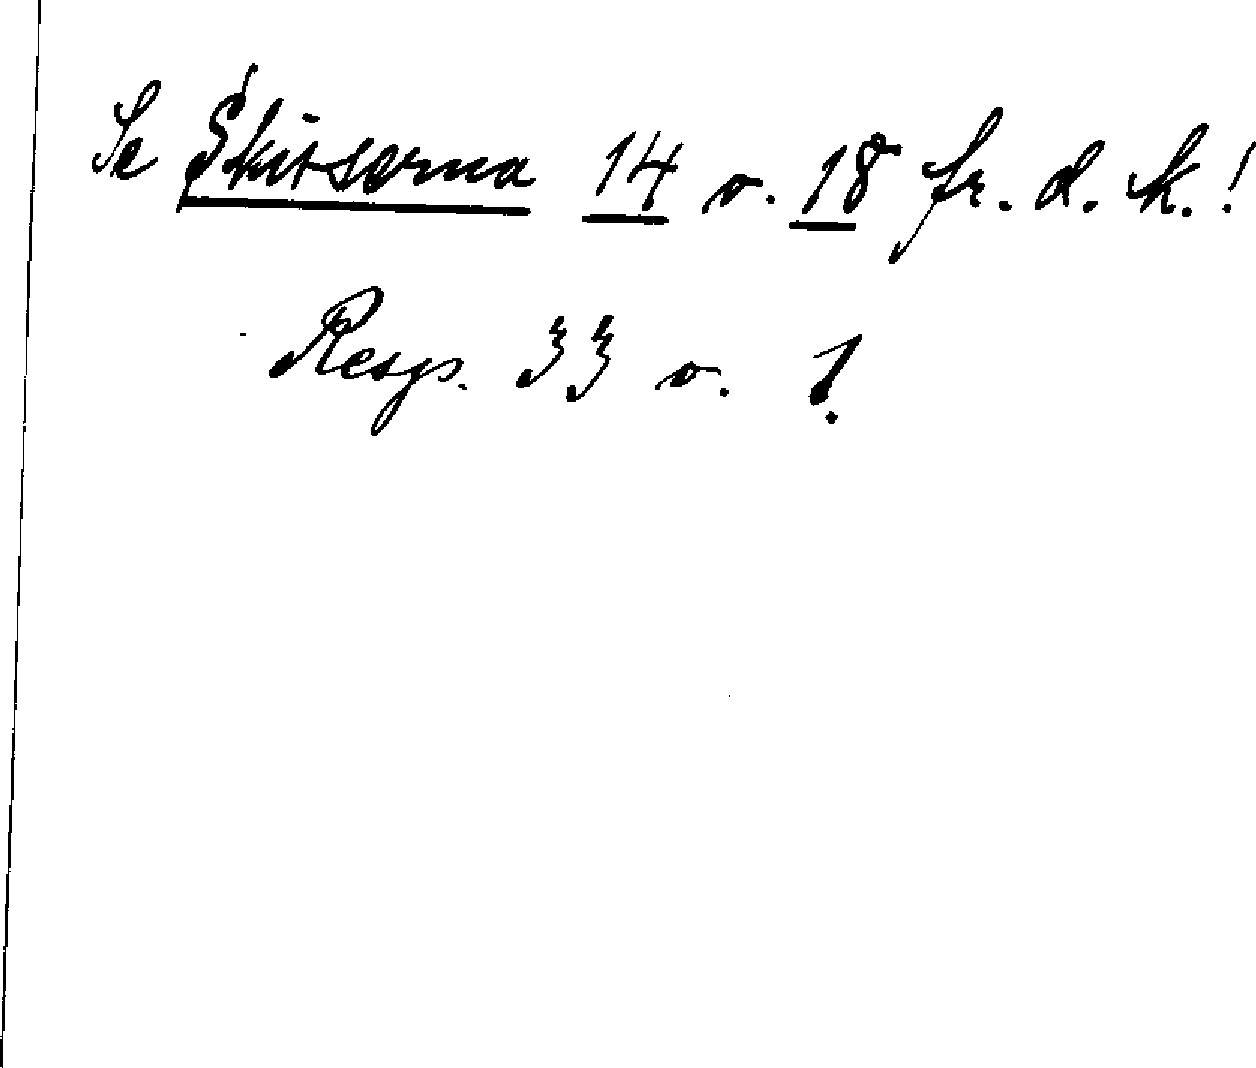 Se Skitserna 14 o. 18 fr. d. k.!
Resp. 33 o. 1.